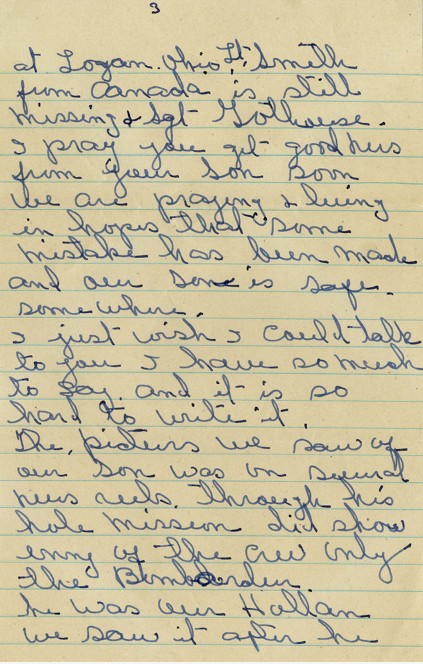 3
at Logan. Ohio Lt. Smith
from Canada is still
missing & Sgt Gothouse.
I pray you get good nus
from your son soon
we are praying & living
in hopes that some
mistake has been made
and our son is safe.
somewhere.
I just wish I could talk
to you I have so much
to say and it is so
hard to write it.
The picturs we saw of
our son was on sevral
nus reels. through his
hole mission did show
enny of the crew only
the Bombarder
he was over Hollan
we saw it after he